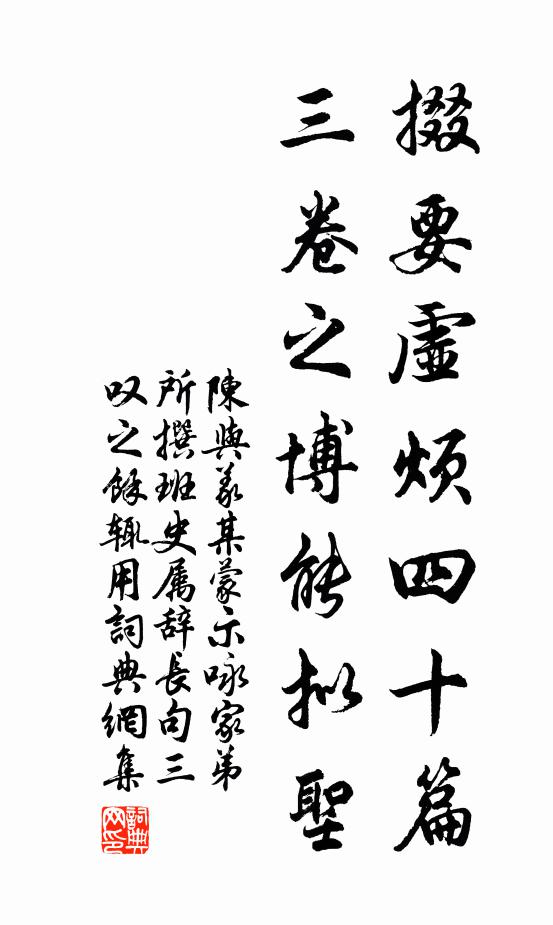 掇要虛煩四十篇
三卷之博能拟聖
陳與義某蒙示咏家弟
所撰班史属辞長句三
叹之餘輒用詞典網集
詞典
网印